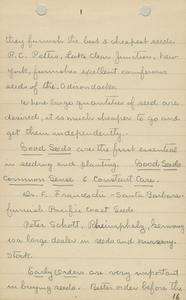 they furnish the best & cheapest seeds.
R.C. Pettis, Lake Clear Junction, New
York, furnishes excellent coniferous
seeds of the Adirondacks.
Where large quantities of seed are
desired, it is much cheaper to go and
get them independently.
Good Seeds are the first essential
in seeding and planting. Good Seeds
Common Sense & Constant Care.
Dr. F. Franceschi - Santa Barbara
furnish Pacific Coast Seeds
Peter Schott, Rheinphalz, Germany
is a large dealer in seeds and nursery
stock.
Early Orders are very important
in buying seeds. Better order before the